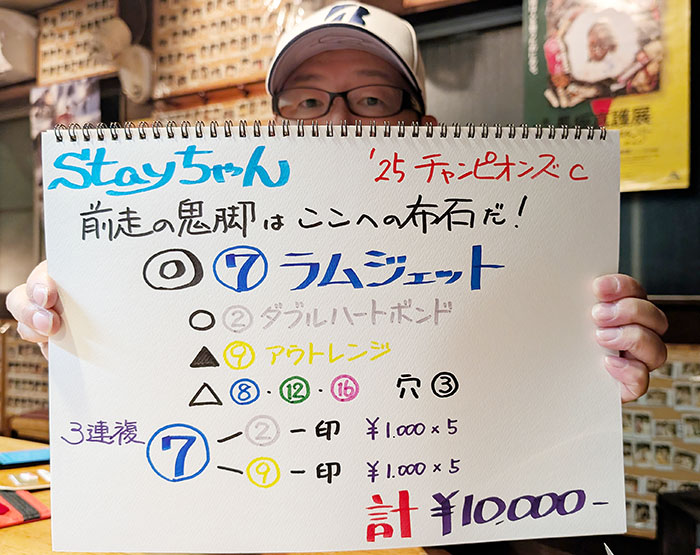 Stayちゃん '25 チャンピオンズC
前走の鬼脚はここへの布石だ!
◎ ⑦ ラムジェット
○ ② ダブルハートボンド
▲ ⑨ アウトレンジ
△ ⑧・⑫・⑯ 穴 ③
3連複 ⑦ ② ー印 ¥1.000×5
⑨ ー印 ¥1.000×5
計 ¥10,000-